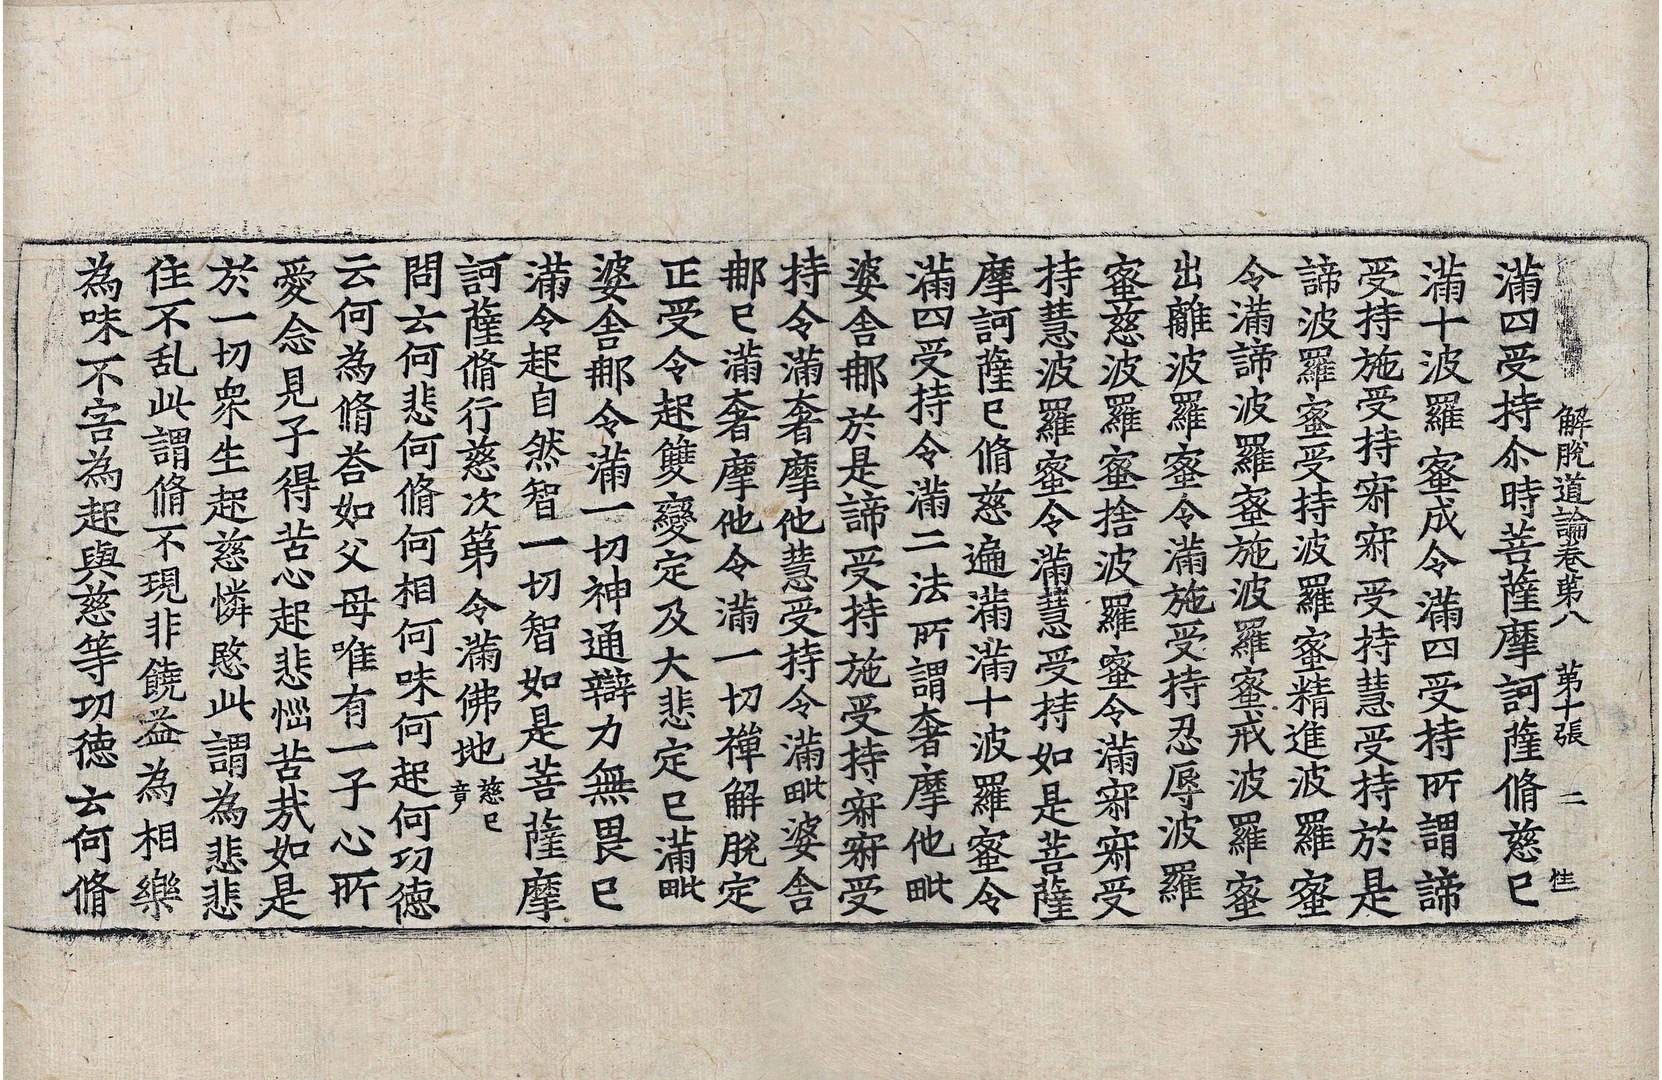 解脫道論卷苐八　苐十張　二　性
滿四受持尒時菩薩摩訶薩脩慈已
滿十波羅蜜成令滿四受持所謂諦
受持施受持寂寂受持慧受持於是
諦波羅蜜受持波羅蜜精進波羅蜜
令滿諦波羅蜜施波羅蜜戒波羅蜜
出離波羅蜜令滿施受持忍辱波羅
蜜慈波羅蜜捨波羅蜜令滿寂寂受
持慧波羅蜜令滿慧受持如是菩薩
摩訶薩已脩慈遍滿滿十波羅蜜令
滿四受持令滿二法所謂奢摩他毗
婆舍那於是諦受持施受持寂寂受
持令滿奢摩他慧受持令滿毗婆舍
那已滿奢摩他令滿一切禪解脫定
正受令起雙變定及大悲定已滿毗
婆舍那令滿一切神通辯力無畏已
滿令起自然智一切智如是菩薩摩
訶薩脩行慈次第令滿佛地慈已竟
問云何悲何脩何相何味何起何功德
云何為脩荅如父母唯有一子心所
愛念見子得苦心起悲惱苦㦲如是
於一切衆生起慈憐愍此謂為悲悲
住不乱此謂脩不現非饒益為相樂
為味不害為起與慈等功德云何脩